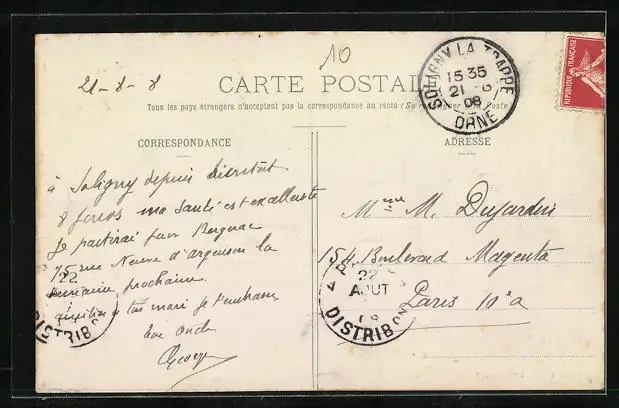 10
21-8-8
CARTE POSTALE
Tous les pays étrangers n'acceptent pas la correspondance au recto (Se Poste
SOLIGNY LA TRAPPE
15 35
21
08
ORNE
REPUBLIQUE FRANÇAISE
CORRESPONDANCE
à Soligny depuis bientôt
8 jours ma santé est excellente
Je partirai pour Bergerac
15 rue Neuve d'argenson la
semaine prochaine.
à ton mari je t'embrasse
Ton Oncle
George
22
DISTRIB
ADRESSE
Mme M. Dujardin
154 Boulevard Magenta
Paris 10e
PARIS
22
AOUT
08
DISTRIBON